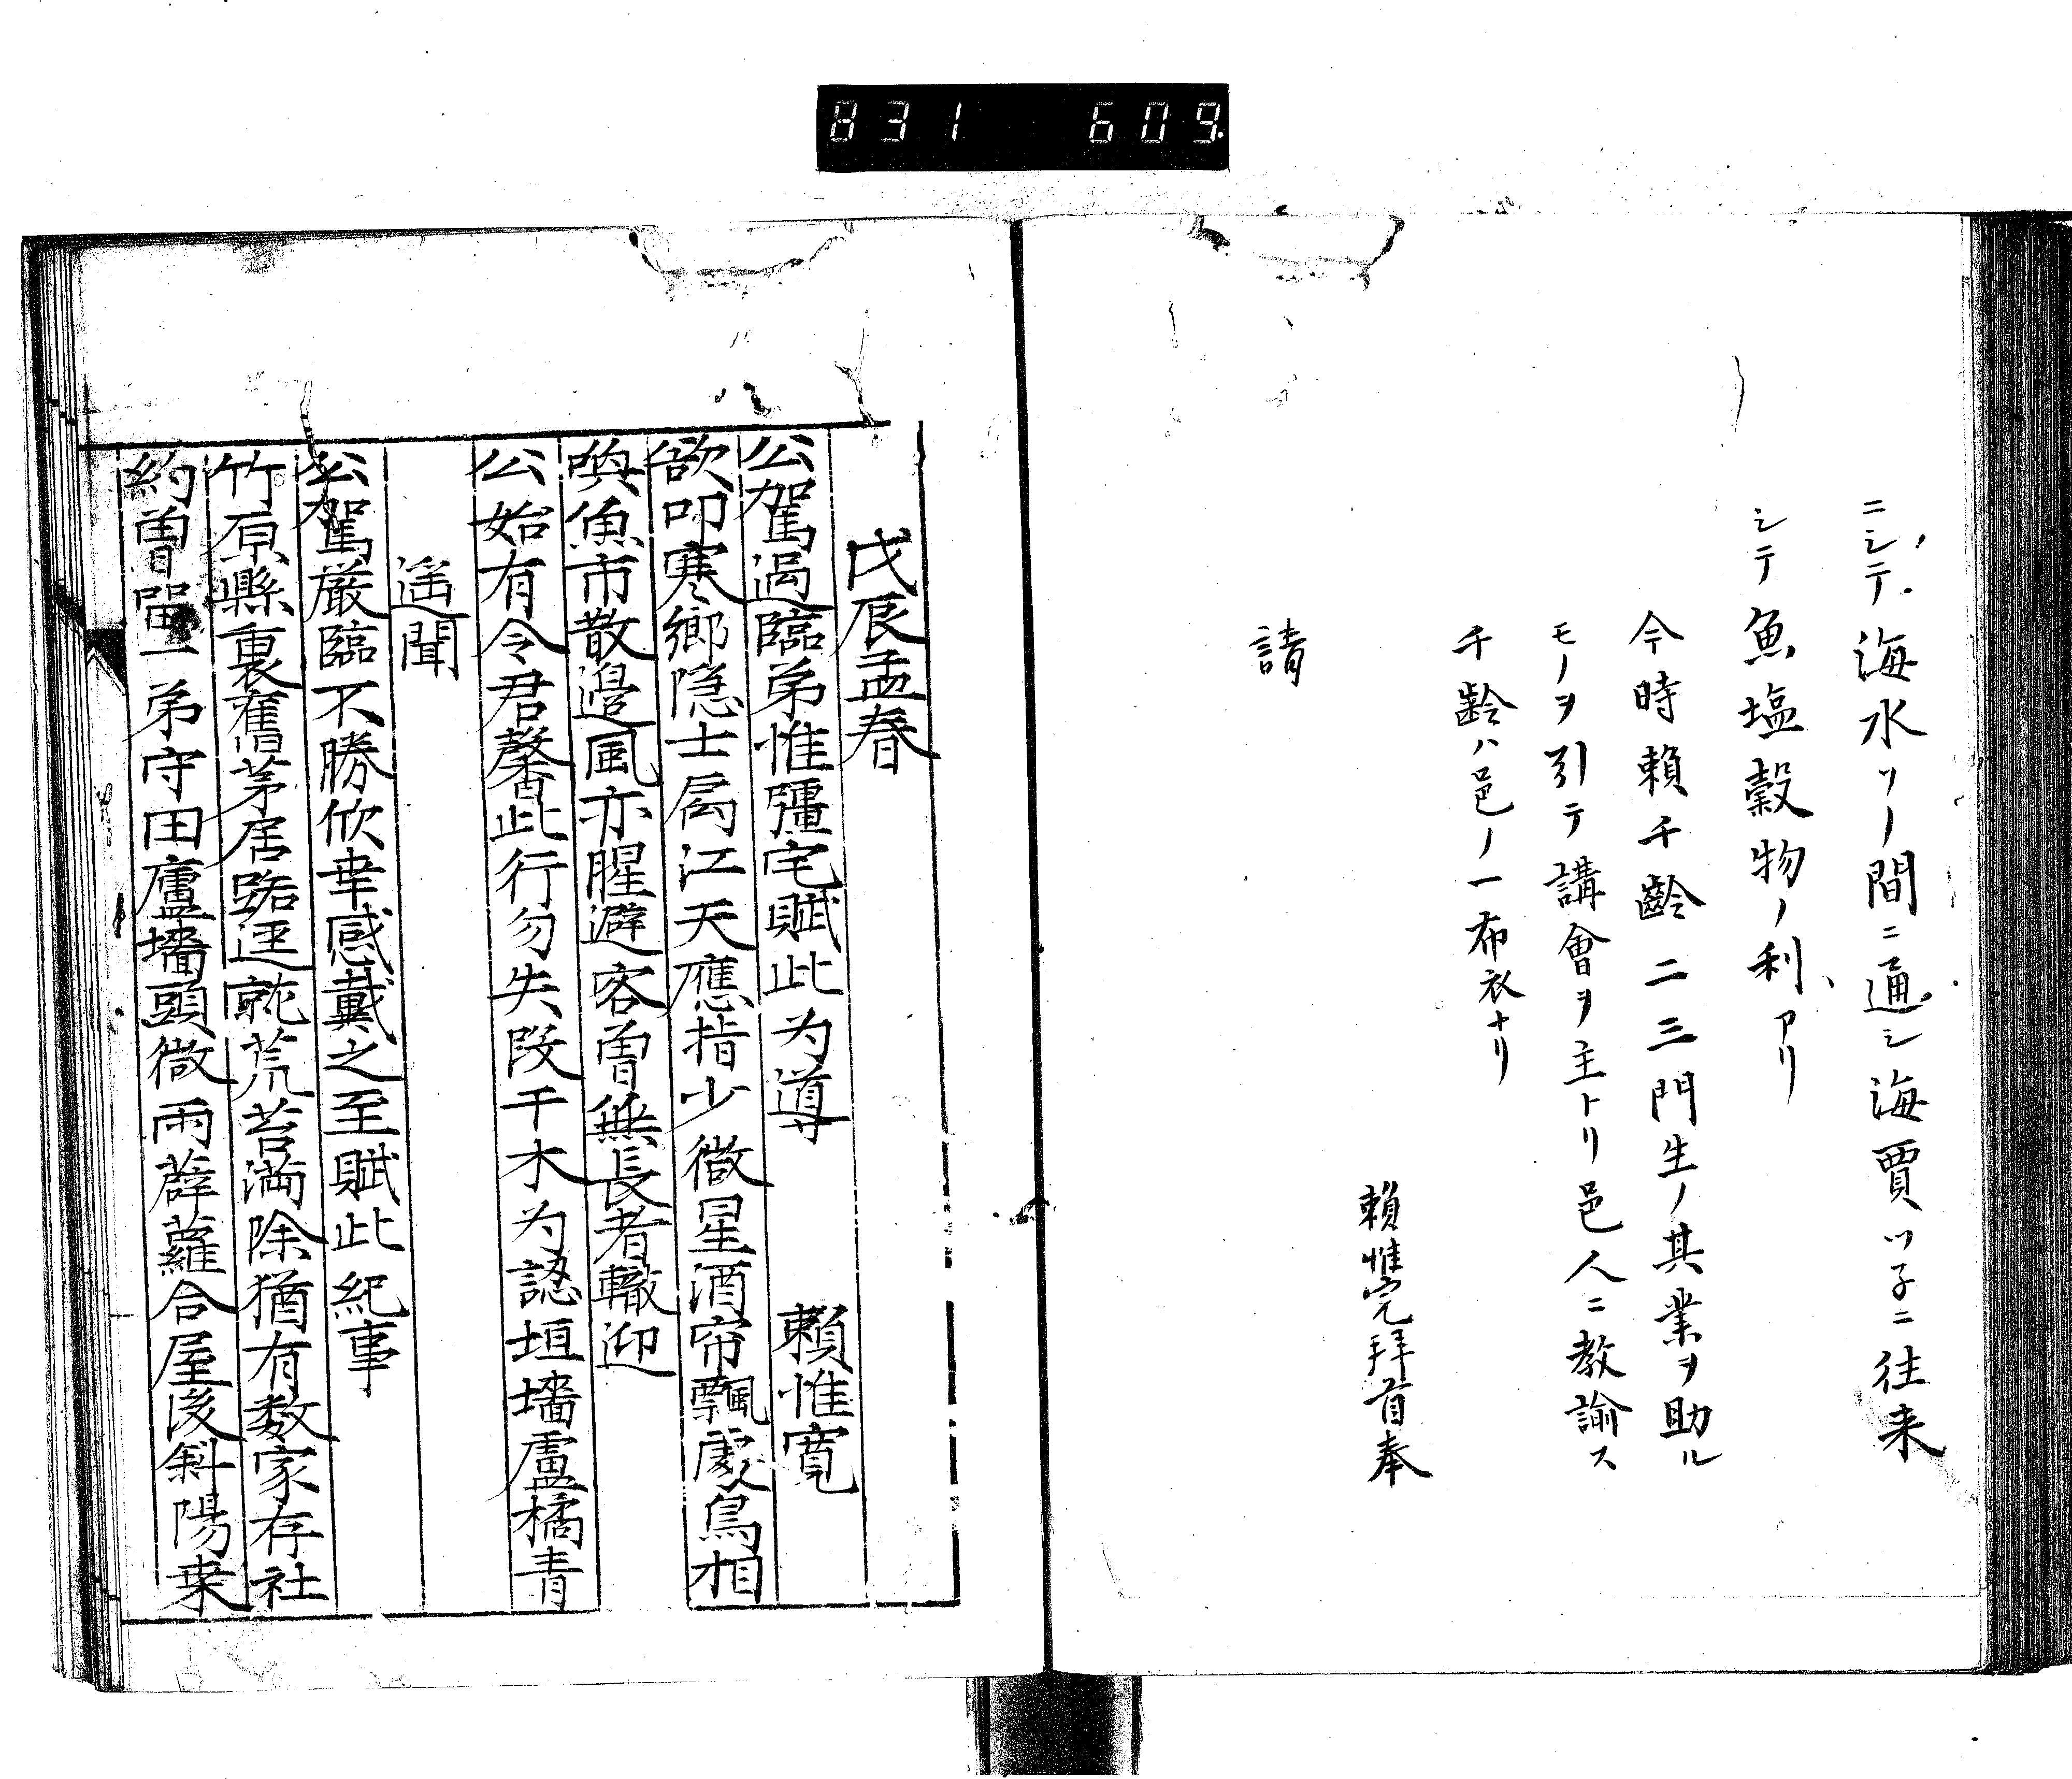 831 609
ニシテ海水ソノ間ニ通シ海賈ツ子ニ往来
シテ魚塩穀物ノ利アリ
今時賴千齡二三門生ノ其業ヲ助ル
モノヲ引テ講會ヲ主トリ邑人ニ教諭ス
千齡ハ邑ノ一布衣ナリ
賴惟完拜首奉
請
戊辰孟春
公駕過臨弟惟彊宅賦此为導 賴惟寬
欲叩寒鄉隐士扃江天應指少微星酒帘飄處鳥相
喚魚市散邊風亦腥避客曽無長者轍迎
公始有令君馨此行勿失段干木为認垣墻盧橘青
遥聞
公駕嚴臨不勝欣幸感戴之至賦此紀事
竹原縣裏舊茅居路逕就荒苔満除猶有数家存社
約曽留一弟守田廬墻頭微雨薜蘿合屋後斜陽桒